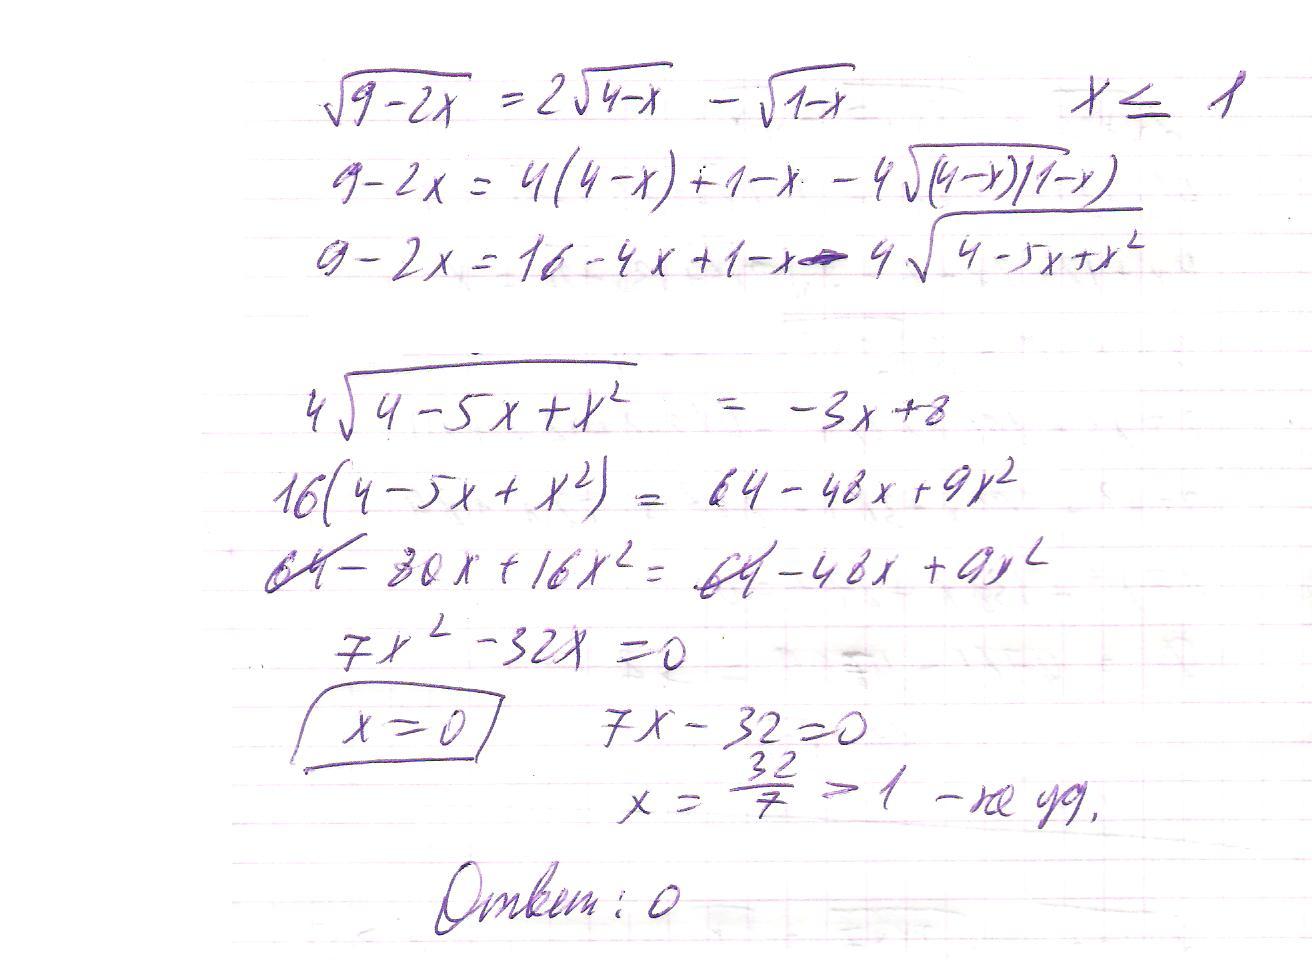 √(9-2x) = 2√(4-x) - √(1-x) x ≤ 1
9-2x = 4(4-x)+1-x - 4√((4-x)(1-x))
9-2x = 16-4x+1-x - 4√(4-5x+x²)
4√(4-5x+x²) = -3x+8
16(4-5x+x²) = 64-48x+9x²
64-80x+16x² = 64-48x+9x²
7x²-32x=0
x=0 7x-32=0
x = 32/7 > 1 - не уд.
Ответ: 0